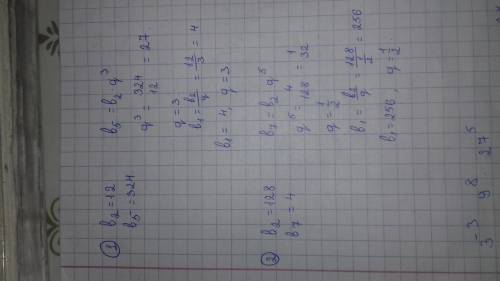 ① b₂ = 12
b₅ = 324
b₅ = b₂ · q³
q³ = 324/12 = 27
q = 3
b₁ = b₂/q = 12/3 = 4
b₁ = 4, q = 3
② b₂ = 128
b₇ = 4
b₇ = b₂ · q⁵
q⁵ = 4/128 = 1/32
q = 1/2
b₁ = b₂/q = 128/(1/2) = 256
b₁ = 256, q = 1/2
3⁻³ 9⁸ 27⁵